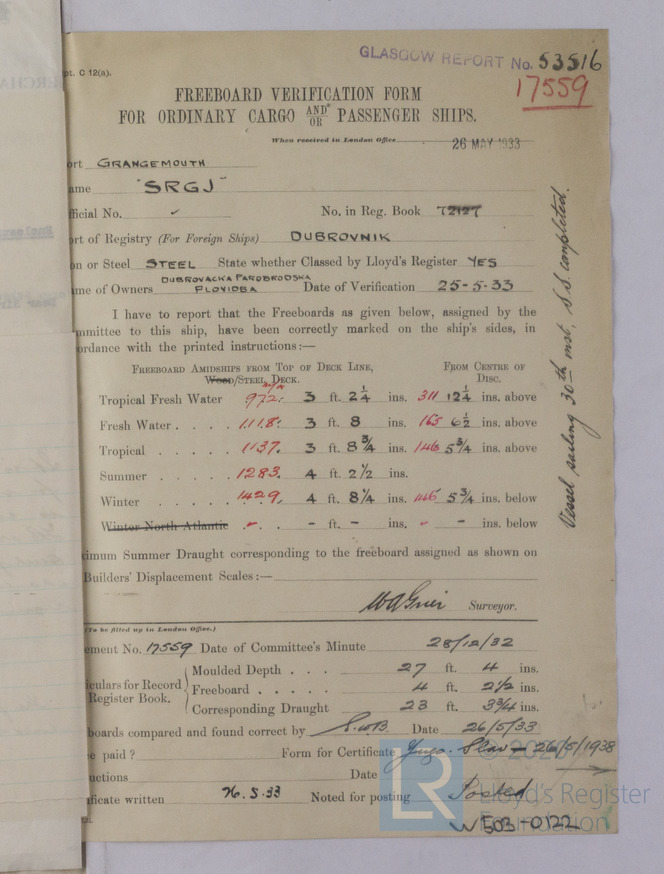 pt. C 12(a).
GLASGOW REPORT No. 53516
17559
FREEBOARD VERIFICATION FORM
FOR ORDINARY CARGO AND/OR PASSENGER SHIPS.
When received in London Office 26 MAY 1933
ort GRANGEMOUTH
ame "SRGJ"
fficial No. ✓ No. in Reg. Book 72127
ort of Registry (For Foreign Ships) DUBROVNIK
on or Steel STEEL State whether Classed by Lloyd's Register YES
me of Owners DUBROVACKA PAROBRODSKA PLOVIDBA Date of Verification 25-5-33
I have to report that the Freeboards as given below, assigned by the
mmittee to this ship, have been correctly marked on the ship's sides, in
ordance with the printed instructions:—
FREEBOARD AMIDSHIPS FROM TOP OF DECK LINE, FROM CENTRE OF
WOOD/STEEL DECK. DISC.
m/m
Tropical Fresh Water 972. 3 ft. 2¼ ins. 311 12¼ ins. above
Fresh Water . . . . 1118. 3 ft. 8 ins. 165 6½ ins. above
Tropical . . . . . 1137. 3 ft. 8¾ ins. 146 5¾ ins. above
Summer . . . . . 1283. 4 ft. 2½ ins.
Winter . . . . . 1429. 4 ft. 8¼ ins. 146 5¾ ins. below
Winter North Atlantic - . . - ft. - ins. - ins. below
ximum Summer Draught corresponding to the freeboard assigned as shown on
Builders' Displacement Scales:—
Surveyor.
(To be filled up in London Office.)
ement No. 17559 Date of Committee's Minute 28/12/32
iculars for Record
Register Book.
Moulded Depth . . . 27 ft. 4 ins.
Freeboard . . . . . 4 ft. 2½ ins.
Corresponding Draught 23 ft. 3¾ ins.
boards compared and found correct by Date 26/5/33
e paid? Form for Certificate Jugo-Slav - 26/5/1938
uctions Date
ificate written 26.5.33 Noted for posting Posted
W503-0122
Vessel sailing 30th inst. S.S. completed.
LR
© 202
Lloyd's Register
Foundation